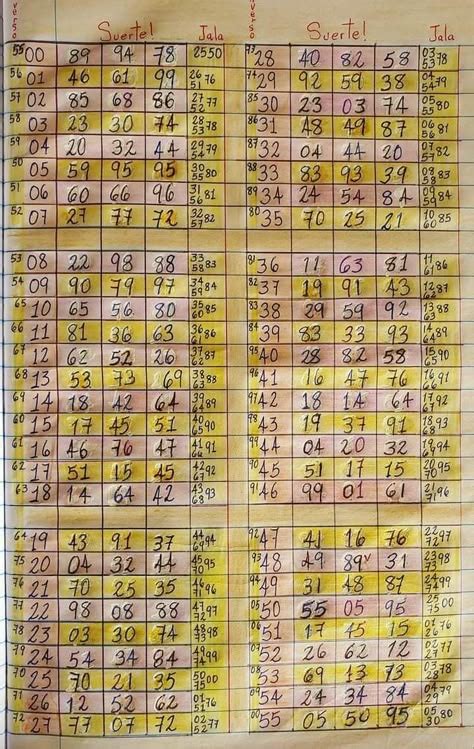 verso Suerte! Jala
55 00 89 94 78 25 50
56 01 46 61 99 26 51 76
57 02 85 68 86 27 52 77
58 03 23 30 74 28 53 78
59 04 20 32 44 29 54 79
50 05 59 95 95 30 55 80
51 06 60 66 96 31 56 81
52 07 27 77 72 32 57 82
53 08 22 98 88 33 58 83
54 09 90 79 97 34 59 84
65 10 65 56 80 35 60 85
66 11 81 36 63 36 61 86
67 12 62 52 26 37 62 87
68 13 53 73 69 38 63 88
69 14 18 42 64 39 64 89
60 15 17 45 51 40 65 90
61 16 46 76 47 41 66 91
62 17 51 15 45 42 67 92
63 18 14 64 42 43 68 93
64 19 43 91 37 44 69 94
75 20 04 32 44 45 70 95
76 21 70 25 35 46 71 96
77 22 98 08 88 47 72 97
78 23 03 30 74 48 73 98
79 24 54 34 84 49 74 99
70 25 70 21 35 50 75 00
71 26 12 52 62 01 51 76
72 27 77 07 72 02 52 77
verso Suerte! Jala
73 28 40 82 58 03 53 78
74 29 92 59 38 04 54 79
85 30 23 03 74 05 55 80
86 31 48 49 87 06 56 81
87 32 04 44 20 07 57 82
88 33 83 93 39 08 58 83
89 34 24 54 84 09 59 84
80 35 70 25 21 10 60 85
81 36 11 63 81 11 61 86
82 37 19 91 43 12 62 87
83 38 29 59 92 13 63 88
84 39 83 33 93 14 64 89
95 40 28 82 58 15 65 90
96 41 16 47 76 16 66 91
97 42 18 14 64 17 67 92
98 43 19 37 91 18 68 93
99 44 04 20 32 19 69 94
90 45 51 17 15 20 70 95
91 46 99 01 61 21 71 96
92 47 41 16 76 22 72 97
93 48 49 89 31 23 73 98
94 49 31 48 87 24 74 99
05 50 55 05 95 25 75 00
06 51 17 45 15 01 26 76
07 52 26 62 12 02 27 77
08 53 69 13 73 03 28 78
09 54 24 34 84 04 29 79
00 55 05 50 95 05 30 80